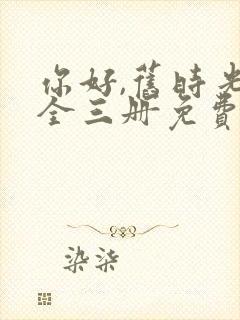 你好,舊時光
全三册免費
染柒